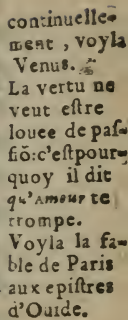 continuelle-
ment, voyla
Venus.
La vertu ne
veut eſtre
louee de paſ-
ſiõ:c'eſtpour-
quoy il dit
qu'Amour te
trompe.
Voyla la fa-
ble de Paris
aux epiſtres
d'Ouide.